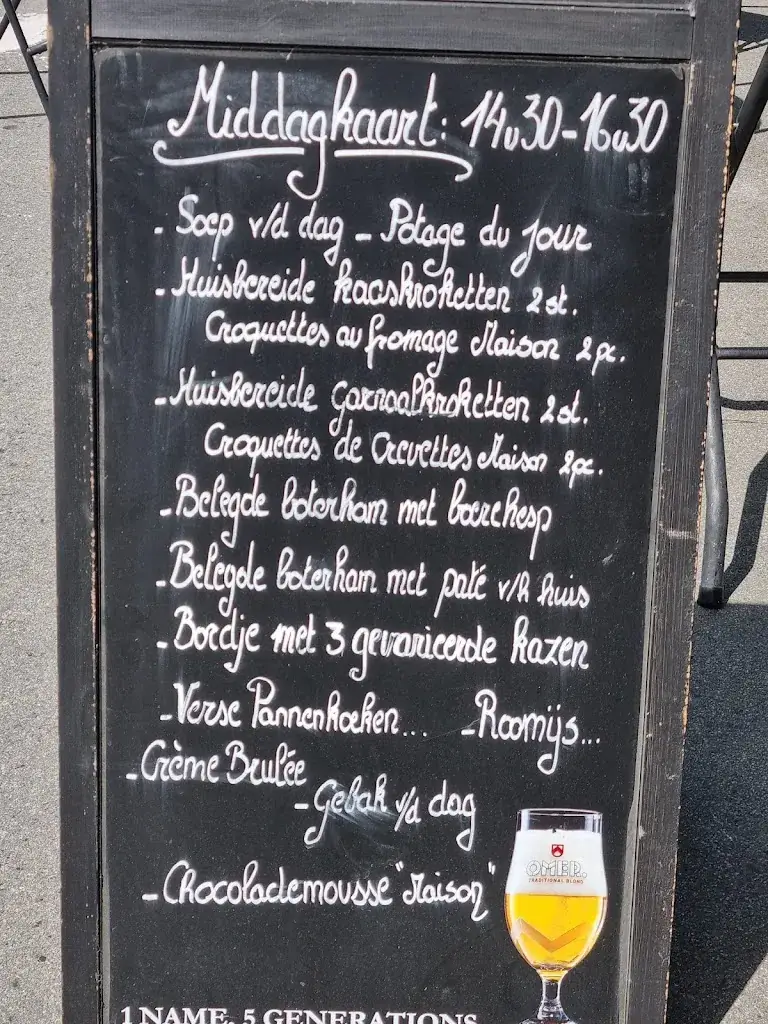 Middagkaart: 14u30-16u30
- Soep v/d dag - Potage du jour
- Huisbereide kaaskroketten 2 st.
Croquettes au fromage Maison 2 pc.
- Huisbereide garnaalkroketten 2 st.
Croquettes de Crevettes Maison 2pc.
- Belegde boterham met boerehesp
- Belegde boterham met paté v/h huis
- Bordje met 3 gevarieerde kazen
- Verse Pannenkoeken... - Roomijs...
- Crème Brulée
- Gebak v/d dag
- Chocolademousse "Maison"
OMER.
TRADITIONAL BLOND
1 NAME, 5 GENERATIONS